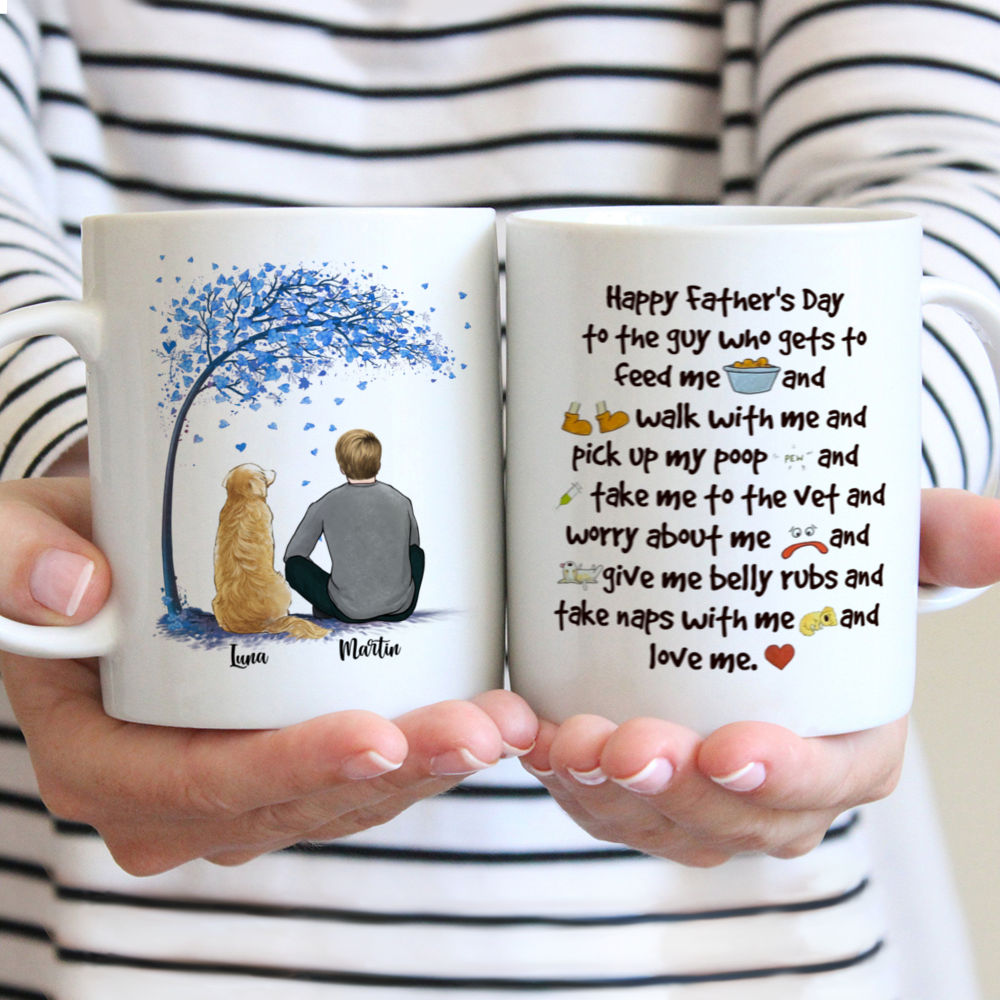 Luna
Martin
Happy Father's Day
to the guy who gets to
feed me and
walk with me and
pick up my poop PEW and
take me to the vet and
worry about me and
give me belly rubs and
take naps with me and
love me.